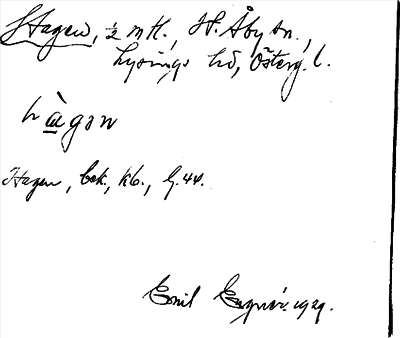 Hagen, ½ mtl., V. Åby sn.,
Lysings hd, Österg. l.
hàgǝn
Hagen, bek., kb., G. 44.
Emil 1929.